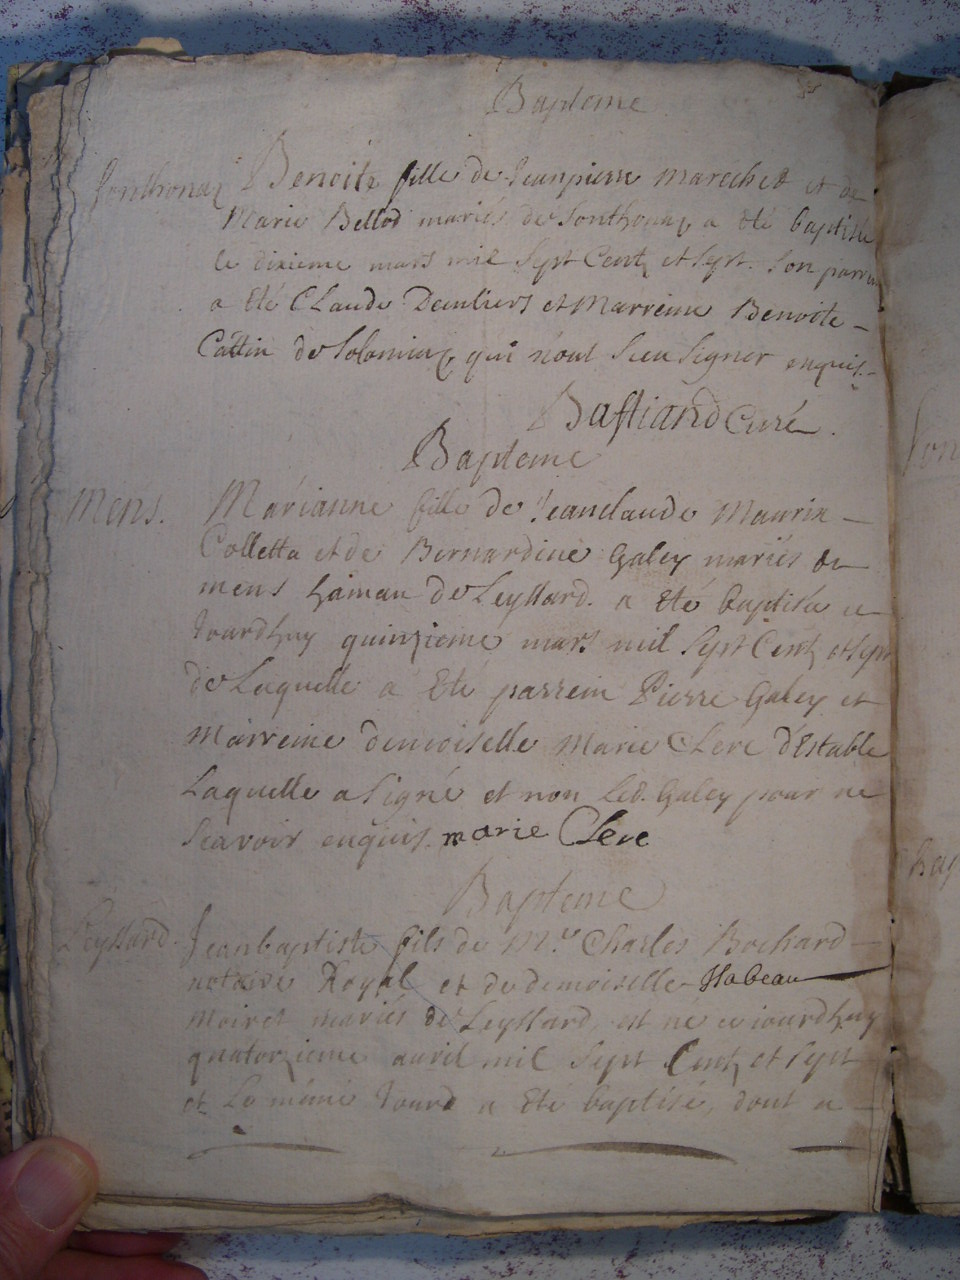 Bapteme
Sonthonaz Benoite fille de Jeanpierre Marechet et de
Marie Bellod mariés de Sonthonaz a eté baptisée
le dixieme mars mil Sept Centz et Sept. Son parrin
a Eté CLaude et Marreine Benoite
Cattin de Solomiaz qui n'ont Sceu Signer enquis.
Bastiand Curé.
Bapteme
Mens. Marianne fille de Jeanclaude Maurin
Colletta et de Bernardine Galey mariés de
mens de Leyssard. a eté baptisée ce
Jourdhuy quinzieme mars mil Sept Centz et Sept
de Laquelle a Eté parrein Pierre Galey et
Marreine demoiselle Marie CLere d'Estable
Laquelle a Signé et non Led. Galey pour ne
Scavoir enquis. marie Clere
Bapteme
Leyssard Jeanbaptiste fils de Mre Charles Bochard
notaire Royal et de demoiselle Isabeau
Moiret mariés de Leyssard, est né ce iourdhuy
quatorzieme avril mil Sept Centz et Sept
et Le méme Jourd a Eté baptisé, dont a
Son